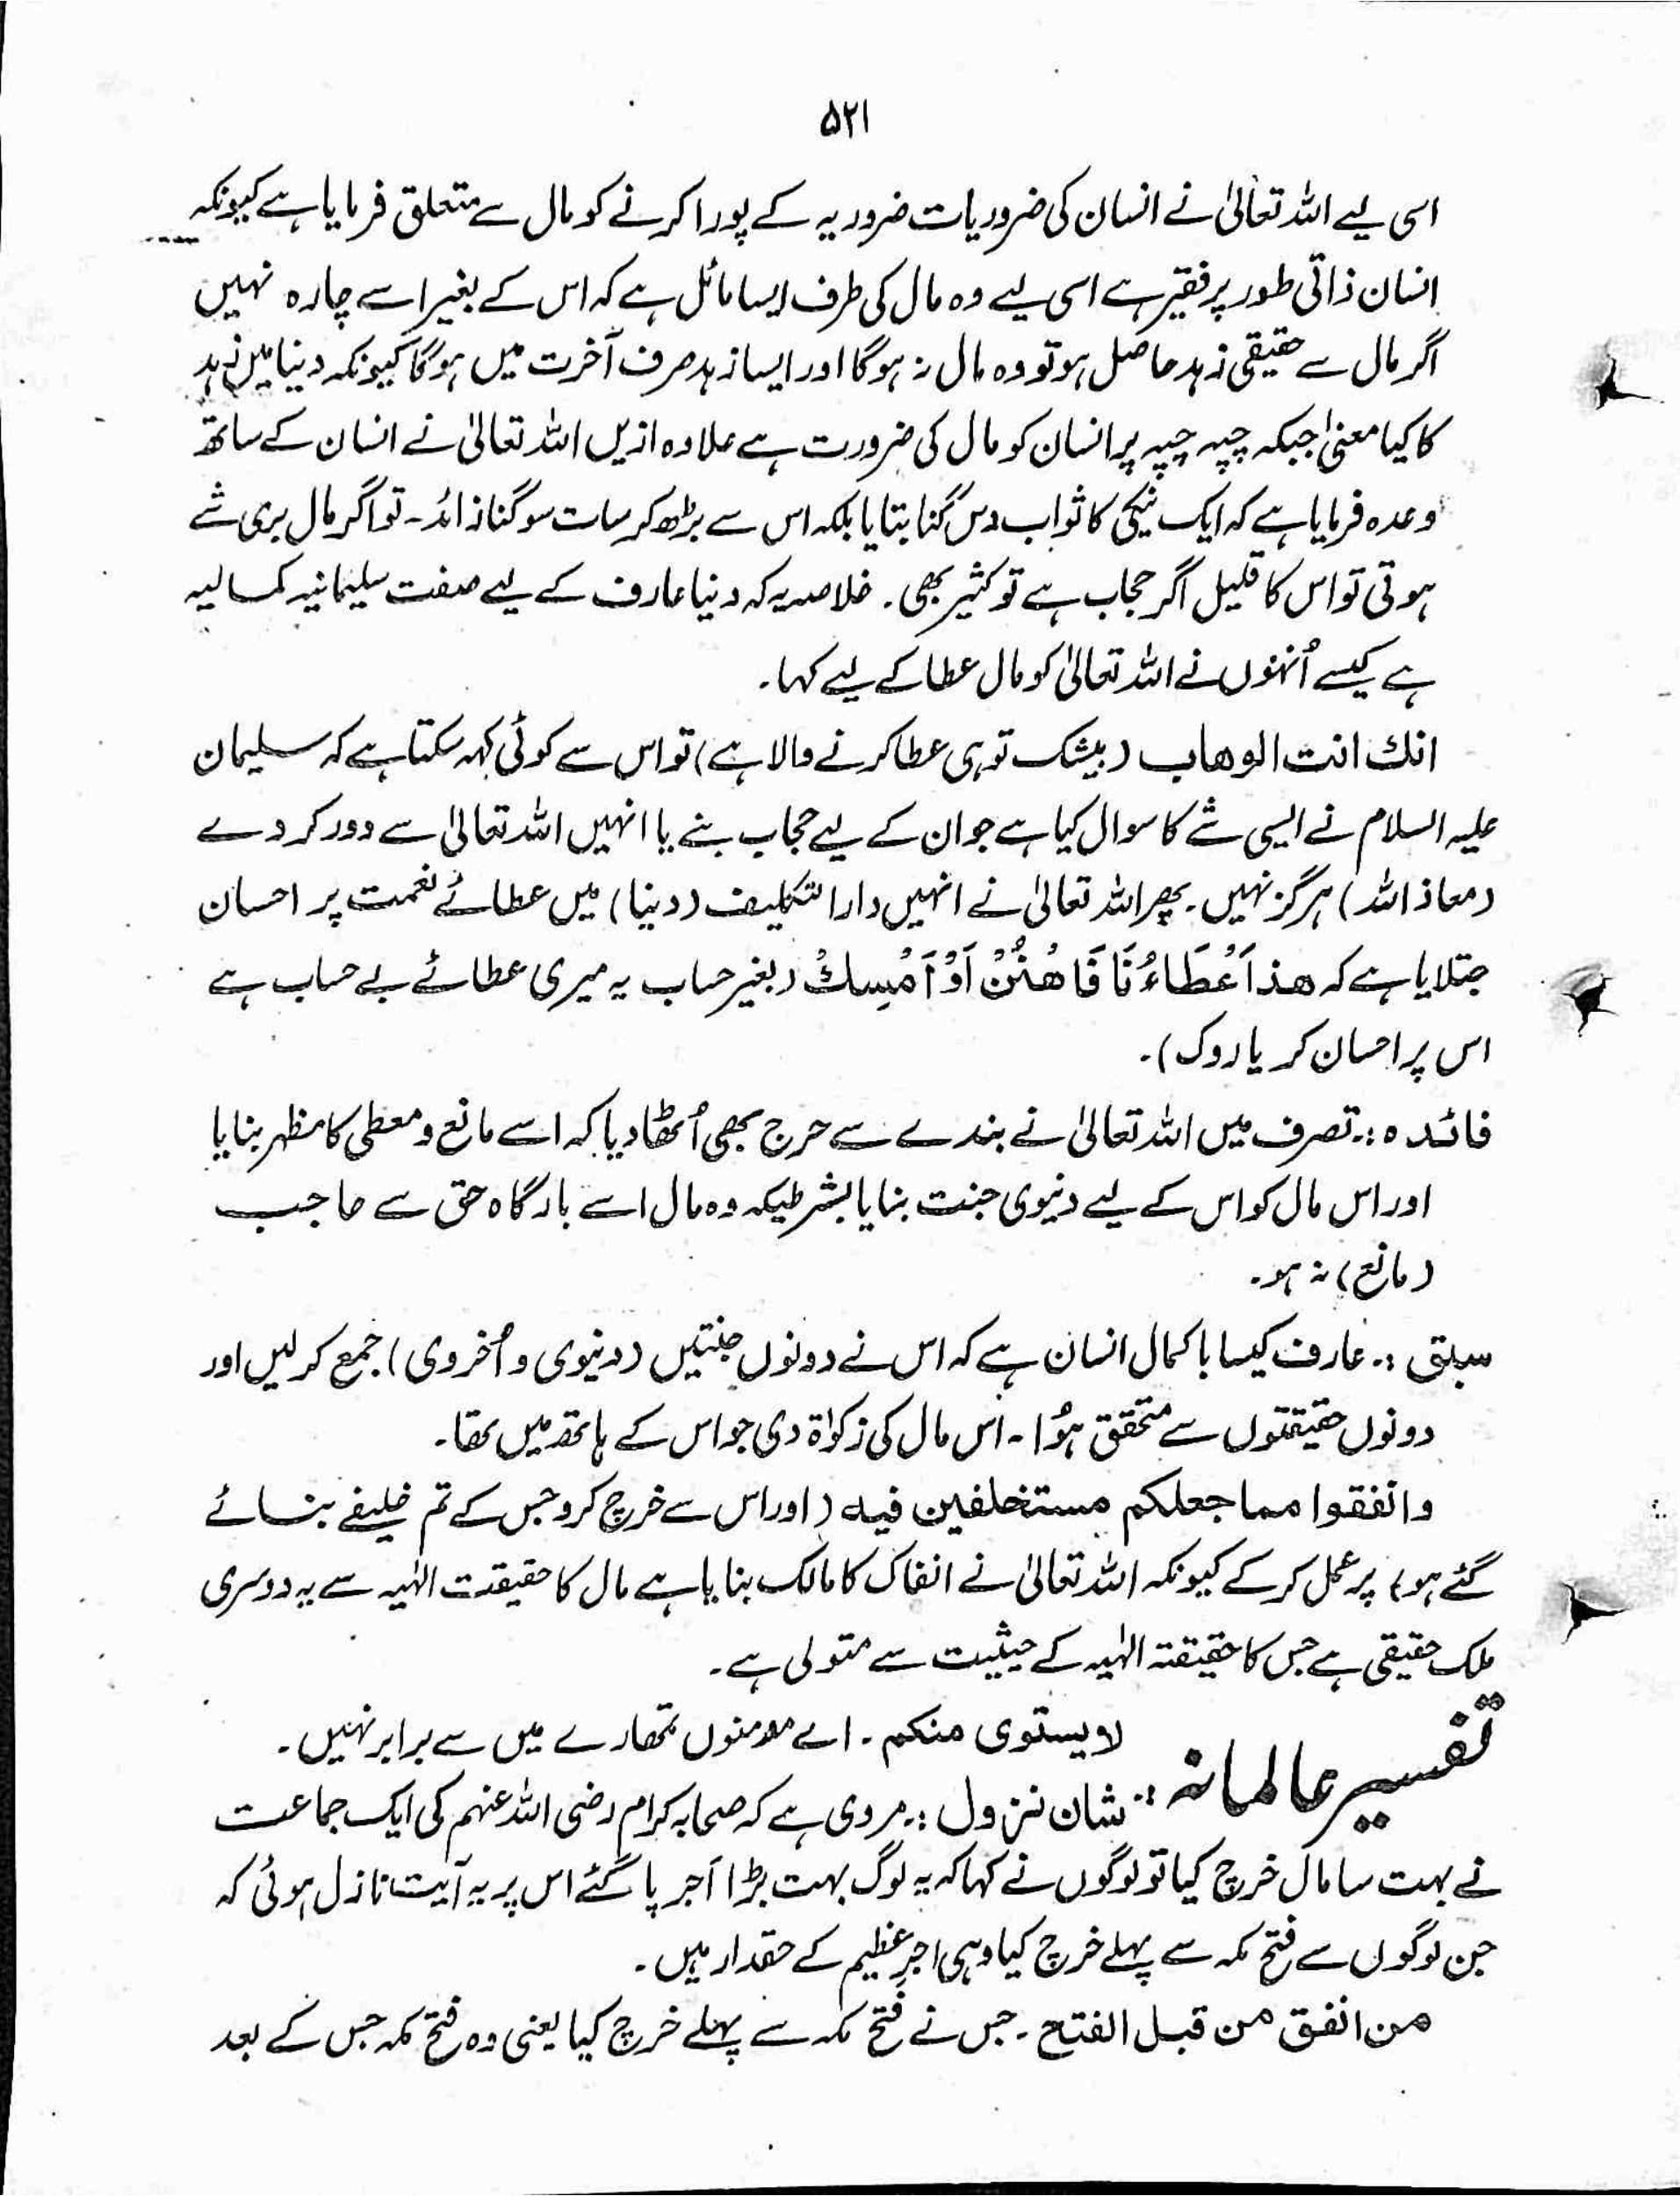 ۵۲۱
اسی لیے اللہ تعالیٰ نے انسان کی ضروریات ضروریہ کے پورا کرنے کو مال سے متعلق فرمایا ہے کیونکہ
انسان ذاتی طور پر فقیر ہے اسی لیے وہ مال کی طرف ایسا مائل ہے کہ اس کے بغیر اسے چارہ نہیں
اگر مال سے حقیقی زہد حاصل ہو تو وہ مال نہ ہوگا اور ایسا زہد صرف آخرت میں ہوگا کیونکہ دینا میں زہد
کا کیا معنیٰ جبکہ چپہ چپہ پر انسان کو مال کی ضرورت ہے علاوہ ازیں اللہ تعالیٰ نے انسان کے ساتھ
وعدہ فرمایا ہے کہ ایک نیکی کا ثواب دس گنا بتایا بلکہ اس سے بڑھ کر سات سو گنا زائد ۔ تو اگر مال بری شے
ہوتی تو اس کا قلیل اگر حجاب ہے تو کثیر بھی ۔ خلاصہ یہ کہ دنیا عارف کے لیے صفت سلیمانیہ کمالیہ
ہے کیسے اُنہوں نے اللہ تعالیٰ کو مال عطا کے لیے کہا ۔
انك انت الوهاب (بیشک تو ہی عطا کرنے والا ہے) تو اس سے کوئی کہہ سکتا ہے کہ سلیمان
علیہ السلام نے ایسی شے کا سوال کیا ہے جو ان کے لیے حجاب بنے یا انہیں اللہ تعالیٰ سے دور کر دے
(معاذ اللہ) ہرگز نہیں ۔ پھر اللہ تعالیٰ نے انہیں دارالتکلیف (دینا) میں عطائے نعمت پر احسان
جتلایا ہے کہ هذا عَطَاءُنَا فَامْنُنْ اَوْ اَمْسِكْ (بغیر حساب یہ میری عطائے بے حساب ہے
اس پر احسان کر یا روک) ۔
فائدہ :۔ تصرف میں اللہ تعالیٰ نے بندے سے حرج بھی اُٹھا دیا کہ اسے مانع و معطی کا مظہر بنایا
اور اس مال کو اس کے لیے دنیوی جنت بنایا بشرطیکہ وہ مال اسے بارگاہ حق سے حاجب
(مانع) نہ ہو ۔
سبق :۔ عارف کیسا باکمال انسان ہے کہ اس نے دونوں جنتیں (دنیوی و اُخروی) جمع کر لیں اور
دونوں حقیقتوں سے متحقق ہُوا ۔ اس مال کی زکوٰۃ دی جو اس کے ہاتھ میں تھا ۔
وانفقوا مما جعلكم مستخلفين فيه (اور اس سے خرچ کرو جس کے تم خلیفے بنائے
گئے ہو) پر عمل کر کے کیونکہ اللہ تعالیٰ نے انفاک کا مالک بنایا ہے مال کا حقیقت الٰہیہ سے یہ دوسری
ملک حقیقی ہے جس کا حقیقتہ الٰہیہ کے حیثیت سے متولی ہے ۔
لا يستوى منكم ۔ اے مومنوں تمھارے میں سے برابر نہیں ۔
تفسیر عالمانہ :۔ شان نزول :۔ مروی ہے کہ صحابہ کرام رضی اللہ عنہم کی ایک جماعت
نے بہت سا مال خرچ کیا تو لوگوں نے کہا کہ یہ لوگ بہت بڑا اَجر پا گئے اس پر یہ آیت نازل ہوئی کہ
جن لوگوں سے فتح مکہ سے پہلے خرچ کیا وہی اجرِ عظیم کے حقدار ہیں ۔
من انفق من قبل الفتح ۔ جس نے فتح مکہ سے پہلے خرچ کیا یعنی وہ فتح مکہ جس کے بعد